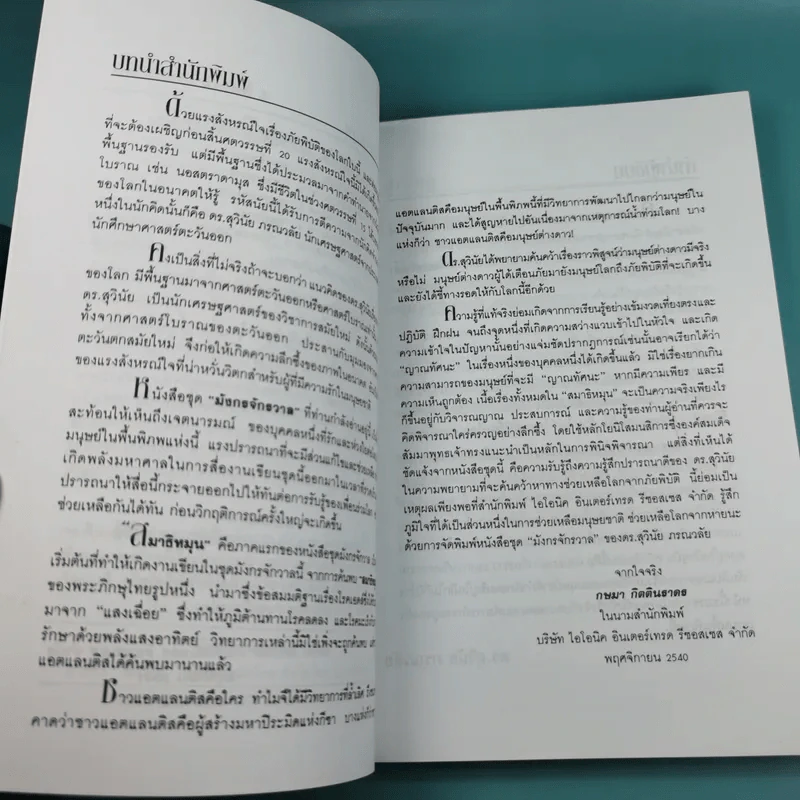 บทนำสำนักพิมพ์
ด้วยแรงสังหรณ์ใจเรื่องภัยพิบัติของโลกใบนี้
ที่จะต้องเผชิญก่อนสิ้นศตวรรษที่ 20 แรงสังหรณ์ใจนี้มิได้
พื้นฐานรองรับ แต่มีพื้นฐานซึ่งได้ประมวลมาจากคำทำนาย
โบราณ เช่น นอสตราดามุส ซึ่งมีชีวิตในช่วงศตวรรษที่ 15
ของโลกในอนาคตให้รู้ รหัสนัยนี้ได้รับการตีความจากนักคิด
หนึ่งในนักคิดนั้นก็คือ ดร.สุวินัย ภรณวลัย นักเศรษฐศาสตร์
นักศึกษาศาสตร์ตะวันออก
คงเป็นสิ่งที่ไม่จริงถ้าจะบอกว่า แนวคิดของดร.สุวินัย
ของโลก มีพื้นฐานมาจากศาสตร์ตะวันออกหรือศาสตร์โบราณ
ดร.สุวินัย เป็นนักเศรษฐศาสตร์ของวิชาการสมัยใหม่
ทั้งจากศาสตร์โบราณของตะวันออก ประสานกับมุมมอง
ตะวันตกสมัยใหม่ จึงก่อให้เกิดความลึกซึ้งของภาพในอนาคต
ของแรงสังหรณ์ใจที่น่าหวั่นวิตกสำหรับผู้ที่มีความรักในมนุษยชาติ
หนังสือชุด "มังกรจักรวาล" ที่ท่านกำลังอ่านอยู่นี้
สะท้อนให้เห็นถึงเจตนารมณ์ ของบุคคลหนึ่งที่รักและห่วงใย
มนุษย์ในพื้นพิภพแห่งนี้ แรงปรารถนาที่จะมีส่วนแก้ไขและช่วยเหลือ
เกิดพลังมหาศาลในการสื่องานเขียนชุดนี้ออกมาในเวลา
ปรารถนาให้สื่อนี้กระจายออกไปให้ทันต่อการรับรู้ของเพื่อนร่วมโลก
ช่วยเหลือกันได้ทัน ก่อนวิกฤติการณ์ครั้งใหญ่จะเกิดขึ้น
"สมาธิหมุน" คือภาคแรกของหนังสือชุดมังกรจักรวาล
เริ่มต้นที่ทำให้เกิดงานเขียนในชุดมังกรจักรวาลนี้ จากการค้นพบ
ของพระภิกษุไทยรูปหนึ่ง นำมาซึ่งข้อสมมติฐานเรื่องโรคเอดส์
มาจาก "แสงเฉื่อย" ซึ่งทำให้ภูมิต้านทานโรคลดลง และโรค
รักษาด้วยพลังแสงอาทิตย์ วิทยาการเหล่านี้มิใช่เพิ่งจะถูกค้นพบ
แอตแลนติสได้ค้นพบมานานแล้ว
ชาวแอตแลนติสคือใคร ทำไมจึงได้มีวิทยาการที่ล้ำเลิศ
คาดว่าชาวแอตแลนติสคือผู้สร้างมหาปิระมิดแห่งกีซา บางแห่ง
แอตแลนติสคือมนุษย์ในพื้นพิภพนี้ที่มีวิทยาการพัฒนาไปไกลกว่ามนุษย์ใน
ปัจจุบันมาก และได้สูญหายไปอันเนื่องมาจากเหตุการณ์น้ำท่วมโลก! บาง
แห่งก็ว่า ชาวแอตแลนติสคือมนุษย์ต่างดาว!
ดร.สุวินัยได้พยายามค้นคว้าเรื่องราวพิสูจน์ว่ามนุษย์ต่างดาวมีจริง
หรือไม่ มนุษย์ต่างดาวผู้ได้เตือนภัยมายังมนุษย์โลกถึงภัยพิบัติที่จะเกิดขึ้น
และยังได้ชี้ทางรอดให้กับโลกนี้อีกด้วย
ความรู้ที่แท้จริงย่อมเกิดจากการเรียนรู้อย่างเข้มงวดเที่ยงตรงและ
ปฏิบัติ ฝึกฝน จนถึงจุดหนึ่งที่เกิดความสว่างแวบเข้าไปในหัวใจ และเกิด
ความเข้าใจในปัญหานั้นอย่างแจ่มชัดปรากฏการณ์เช่นนั้นอาจเรียกได้ว่า
"ญาณทัศนะ" ในเรื่องหนึ่งของบุคคลหนึ่งได้เกิดขึ้นแล้ว มิใช่เรื่องยากเกิน
ความสามารถของมนุษย์ที่จะมี "ญาณทัศนะ" หากมีความเพียร และมี
ความเห็นถูกต้อง เนื้อเรื่องทั้งหมดใน "สมาธิหมุน" จะเป็นความจริงเพียงไร
ก็ขึ้นอยู่กับวิจารณญาณ ประสบการณ์ และความรู้ของท่านผู้อ่านที่ควรจะ
คิดพิจารณาใคร่ครวญอย่างลึกซึ้ง โดยใช้หลักโยนิโสมนสิการซึ่งองค์สมเด็จ
สัมมาพุทธเจ้าทรงแนะนำเป็นหลักในการพินิจพิจารณา แต่สิ่งที่เห็นได้
ชัดแจ้งจากหนังสือชุดนี้ คือความรับรู้ถึงความรู้สึกปรารถนาดีของ ดร.สุวินัย
ในความพยายามที่จะค้นคว้าหาทางช่วยเหลือโลกจากภัยพิบัติ นี้ย่อมเป็น
เหตุผลเพียงพอที่สำนักพิมพ์ ไอโอนิค อินเตอร์เทรด รีซอสเซส จำกัด รู้สึก
ภูมิใจที่ได้เป็นส่วนหนึ่งในการช่วยเหลือมนุษยชาติ ช่วยเหลือโลกจากหายนะ
ด้วยการจัดพิมพ์หนังสือชุด "มังกรจักรวาล" ของดร.สุวินัย ภรณวลัย
จากใจจริง
กษมา กิตตินธาดธ
ในนามสำนักพิมพ์
บริษัท ไอโอนิค อินเตอร์เทรด รีซอสเซส จำกัด
พฤศจิกายน 2540